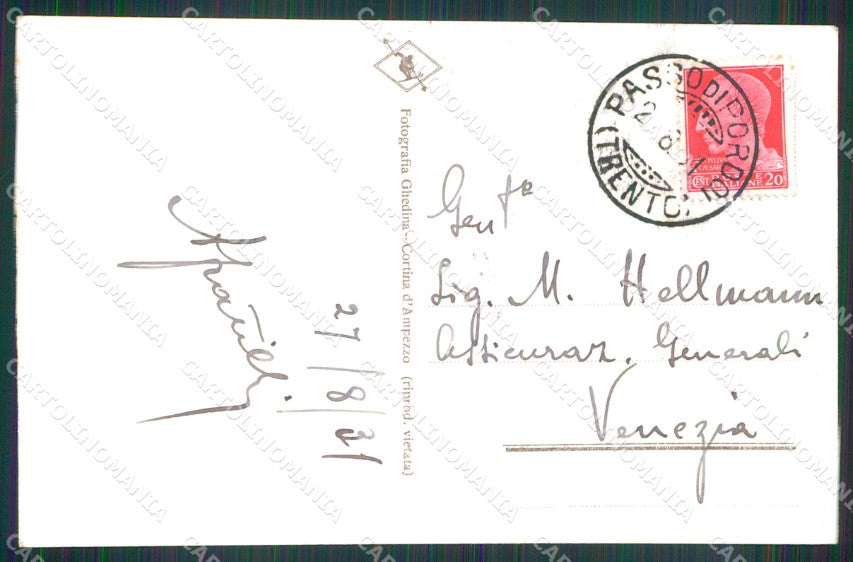 27/8/31
Fotografia Ghedina - Cortina d'Ampezzo (riprod. vietata)
PASSO DI PORDOI
(TRENTO)
20
Gent.
Sig. M. Hellmann
Assicuraz. Generali
Venezia
CARTOLINOMANIA